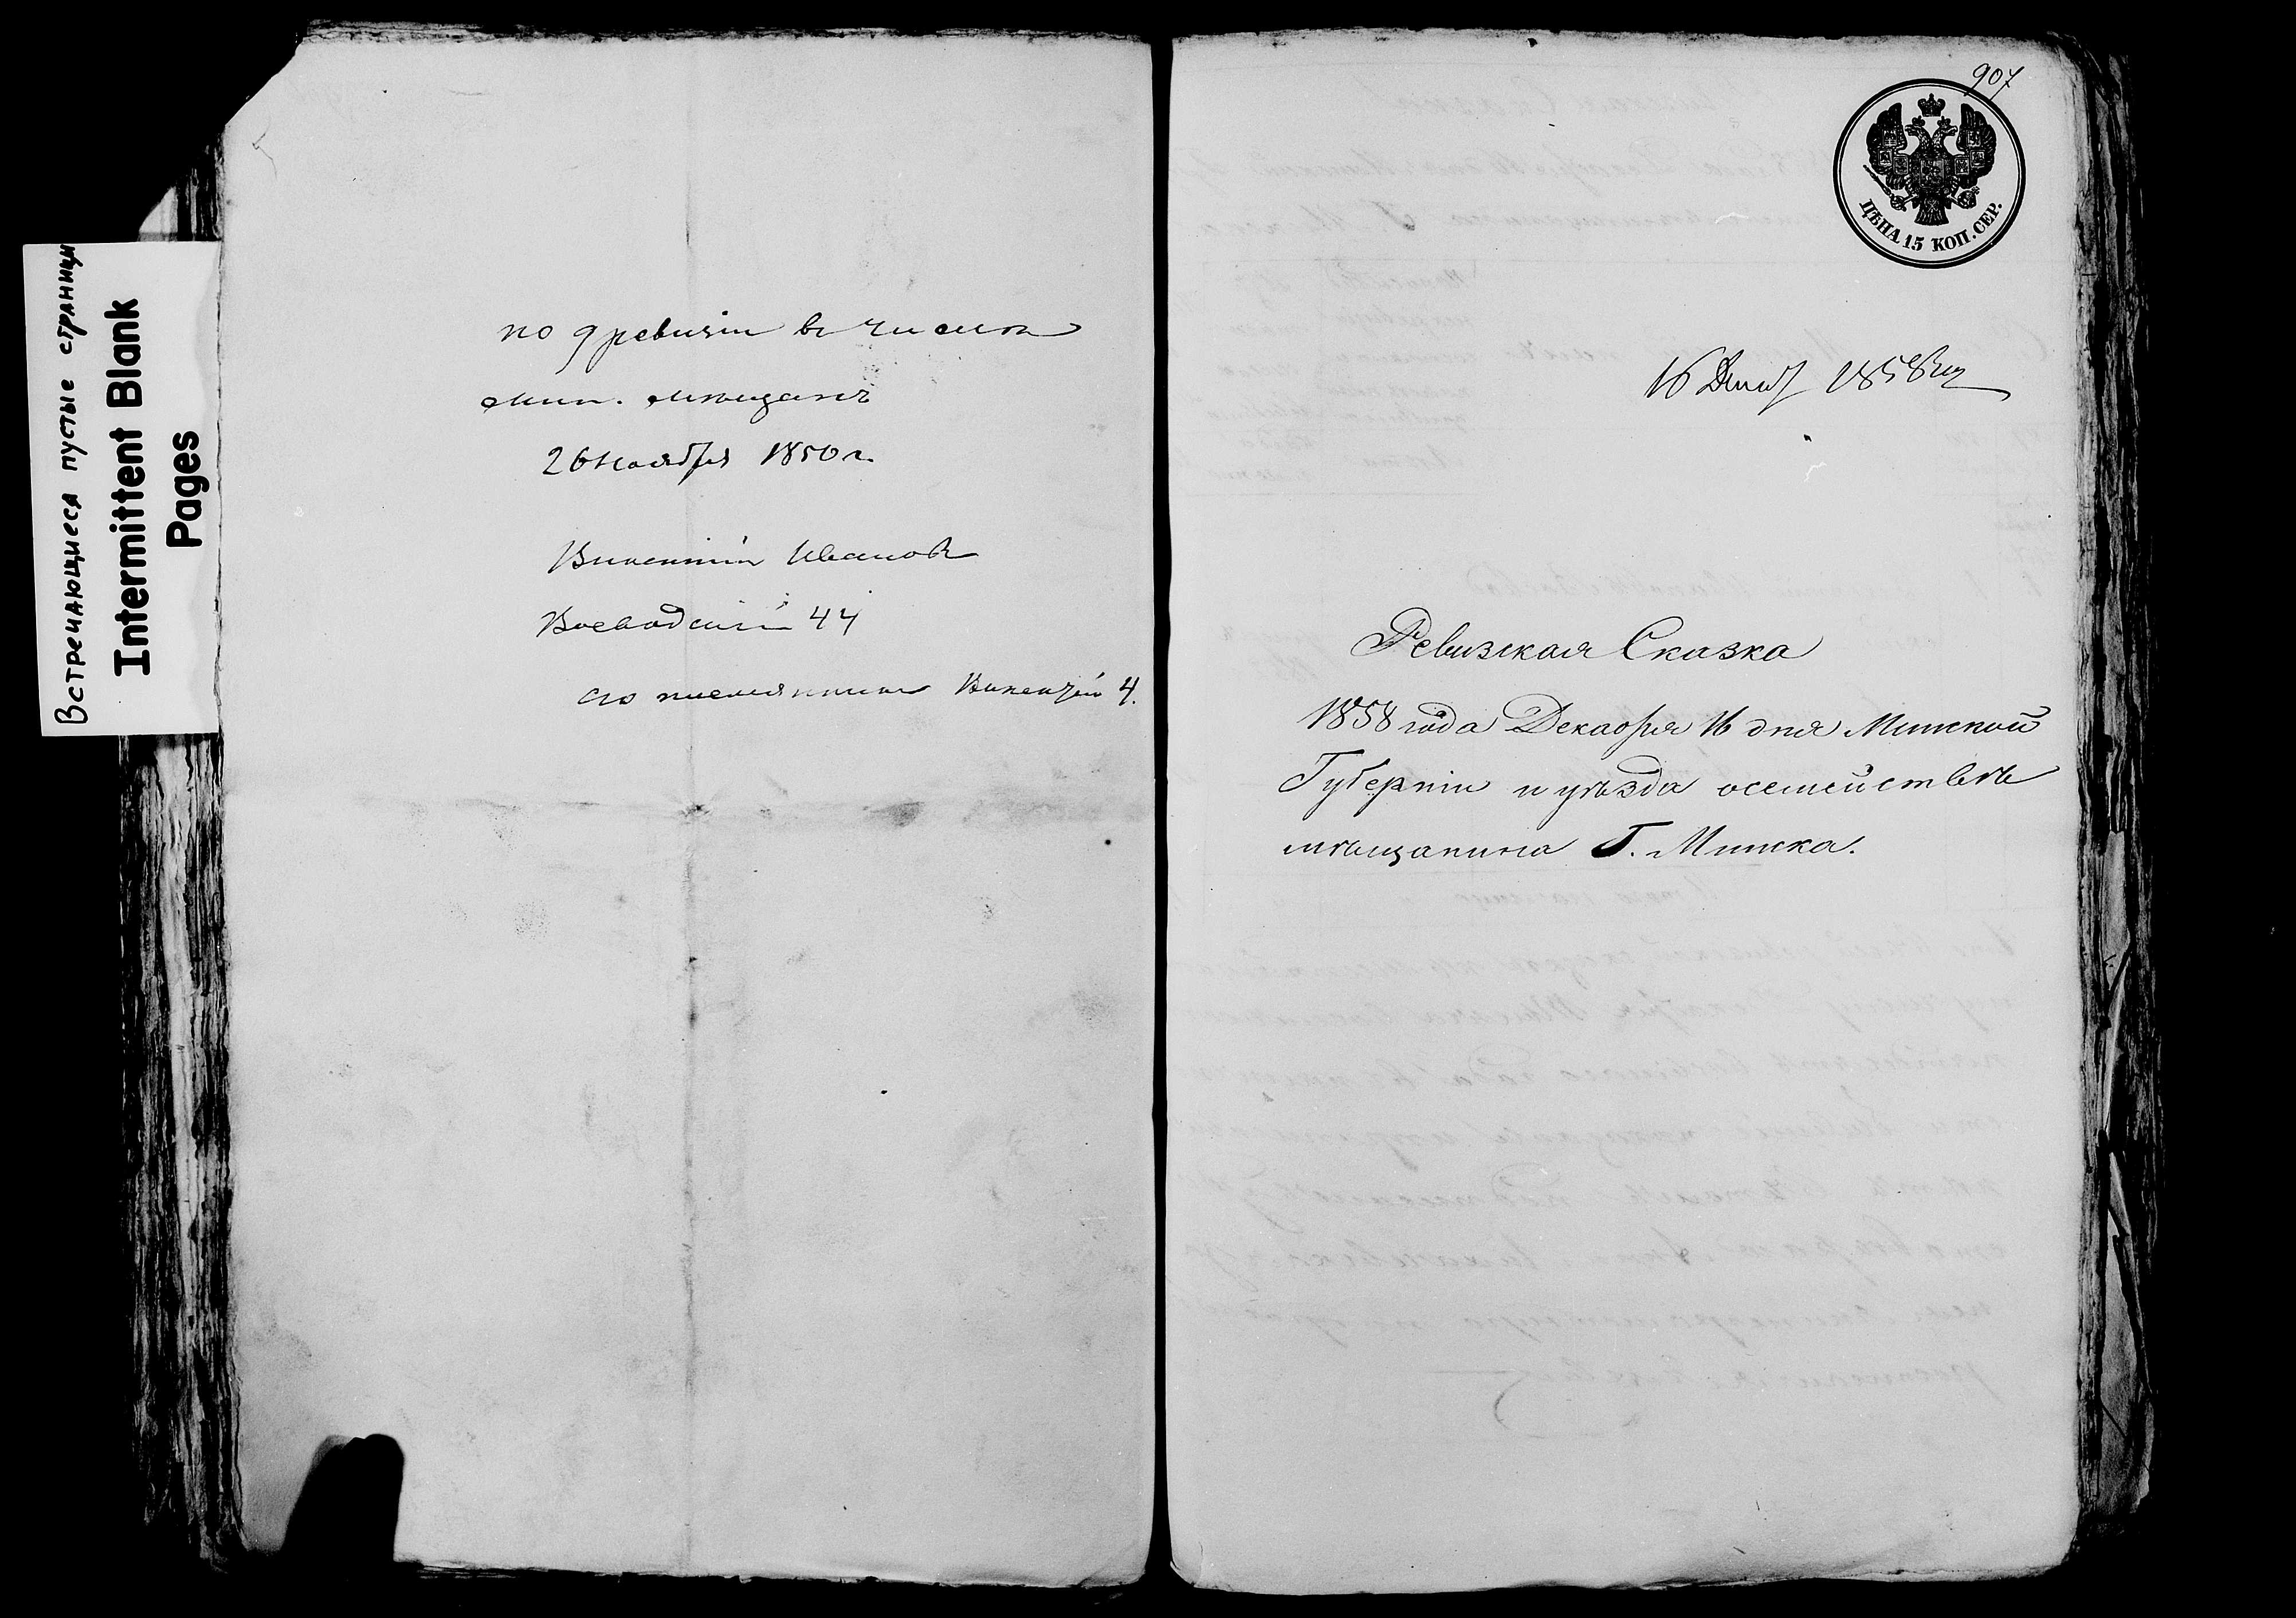 Встречающиеся пустые страницы
Intermittent Blank
Pages
по 9 ревизіи въ числѣ
мин. мѣщанъ
26 ноября 1850 г.
Викентій Ивановъ
Воеводскій 44
его племянникъ Викентій 4.
907
ЦѢНА 15 КОП. СЕР.
16 1858
Ревизская Сказка
1858 года Декабря 16 дня Минской
Губерніи и уѣзда осемействѣ
мѣщанина Г. Минска.